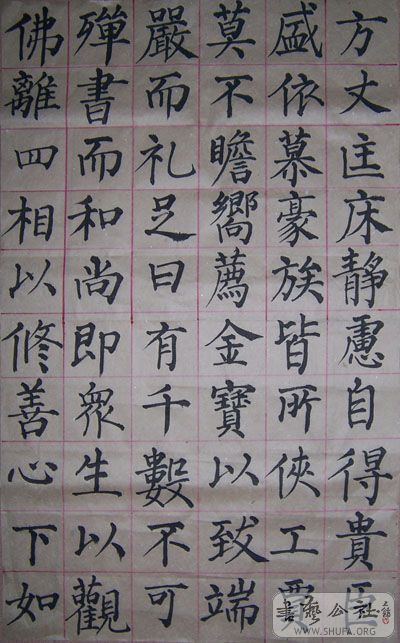 方丈匡床靜慮自得貴臣
盛依慕豪族皆所俠工賈
莫不瞻嚮薦金寶以致端
嚴而礼足日有千數不可
殫書而和尚即衆生以觀
佛離四相以修善心下如
書藝公社
WWW.SHUFA.ORG